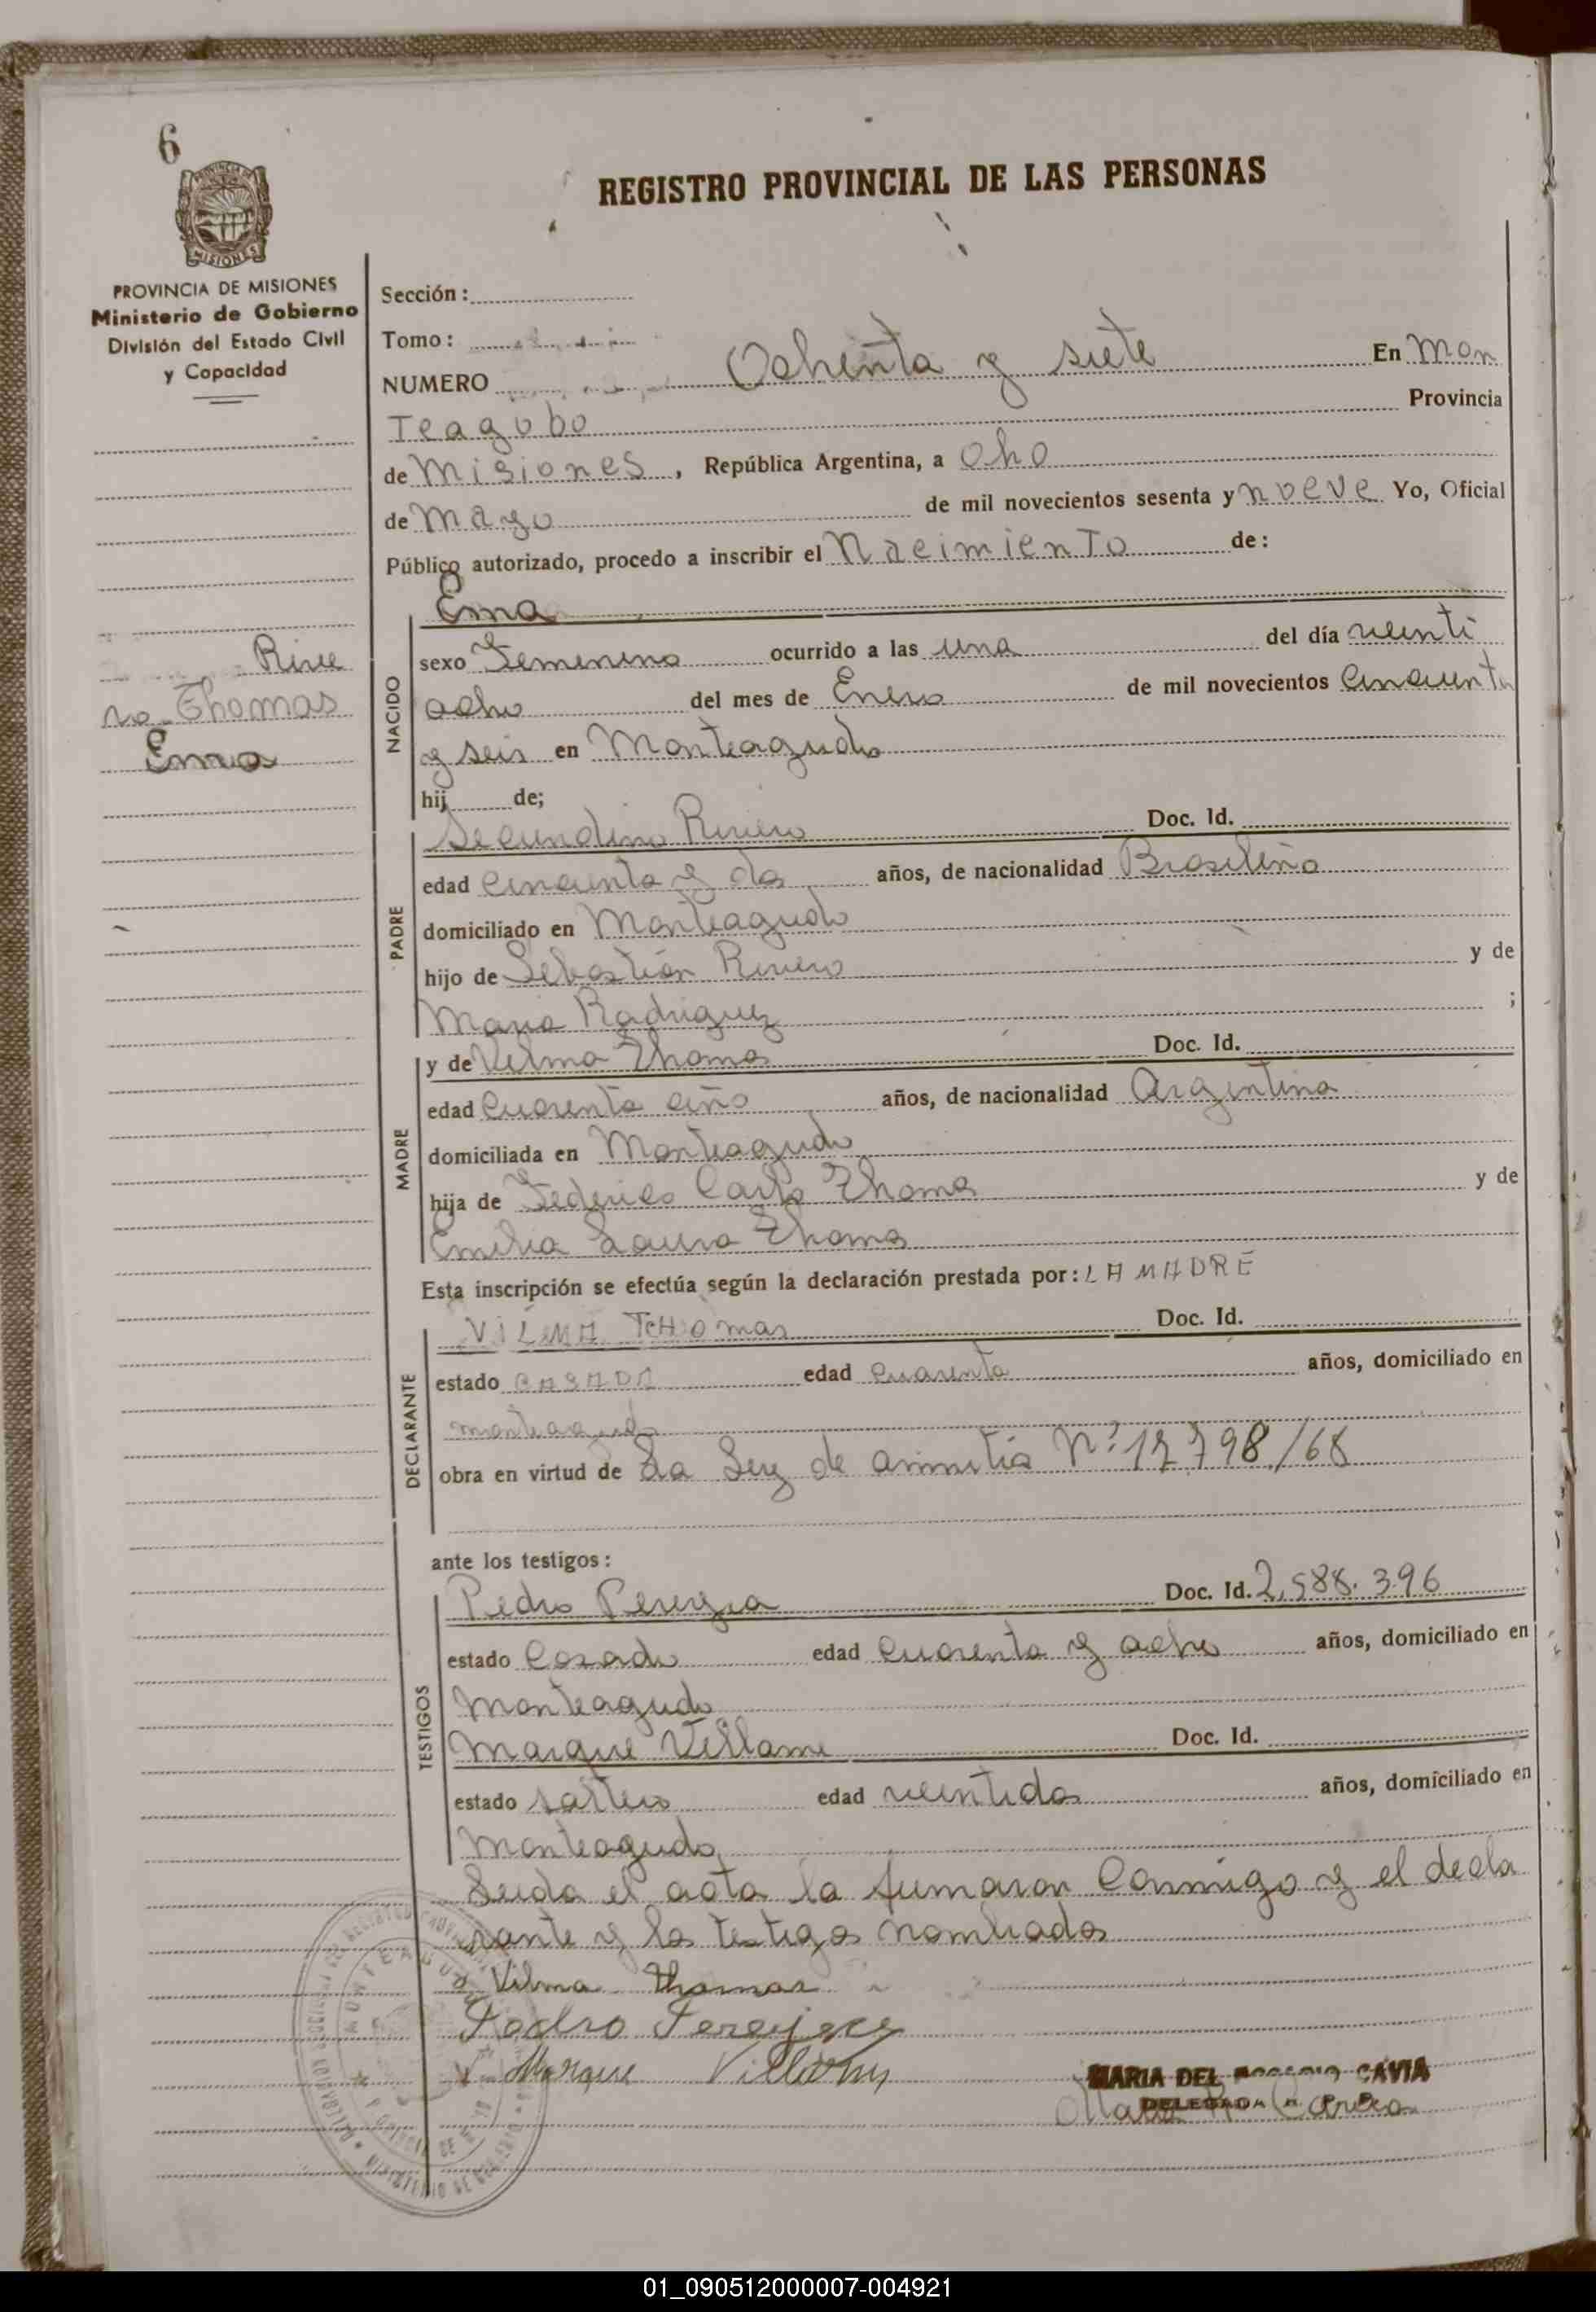 6
PROVINCIA DE MISIONES
Ministerio de Gobierno
División del Estado Civil
y Capacidad
REGISTRO PROVINCIAL DE LAS PERSONAS
Sección :
Tomo :
NUMERO Ochenta y siete En Mon
Teagobo Provincia
de Misiones, República Argentina, a Oho
de Mayo de mil novecientos sesenta y noeve Yo, Oficial
Público autorizado, procedo a inscribir el Nacimiento de :
Rive
ro Thomas
Ema
NACIDO
Ema
sexo Femenino ocurrido a las una del día veinti
ocho del mes de Enero de mil novecientos Cincuenta
y seis en Monteagudo
hij de;
PADRE
Secundino Rivero Doc. Id.
edad Cincuenta y dos años, de nacionalidad Brasileño
domiciliado en Monteagudo
hijo de Sebastián Rivero y de
Maria Rodriguez ;
MADRE
y de Velma Thomas Doc. Id.
edad Cuarenta año años, de nacionalidad Argentina
domiciliada en Monteagudo
hija de Federico Carlo Thomas y de
Emilia Laura Thomas
Esta inscripción se efectúa según la declaración prestada por : LA MADRE
DECLARANTE
ViLMA TcHomas Doc. Id.
estado CASADA edad Cuarenta años, domiciliado en
monteagudo
obra en virtud de La Ley de amnistia Nº 17798/68
ante los testigos :
TESTIGOS
Pedro Pereyra Doc. Id. 2.588.396
estado Casado edad Cuarenta y ocho años, domiciliado en
Monteagudo
Marque Villame Doc. Id.
estado soltero edad veintidos años, domiciliado en
Monteagudo
Leida el acta la firmaron Conmigo y el decla
rante y los testigos nombrados
Vilma thomas
Pedro
Marque
MARIA DEL ROSARIO CAVIA
DELEGADA R. P. P.
MONTEAGUDO
01_090512000007-004921